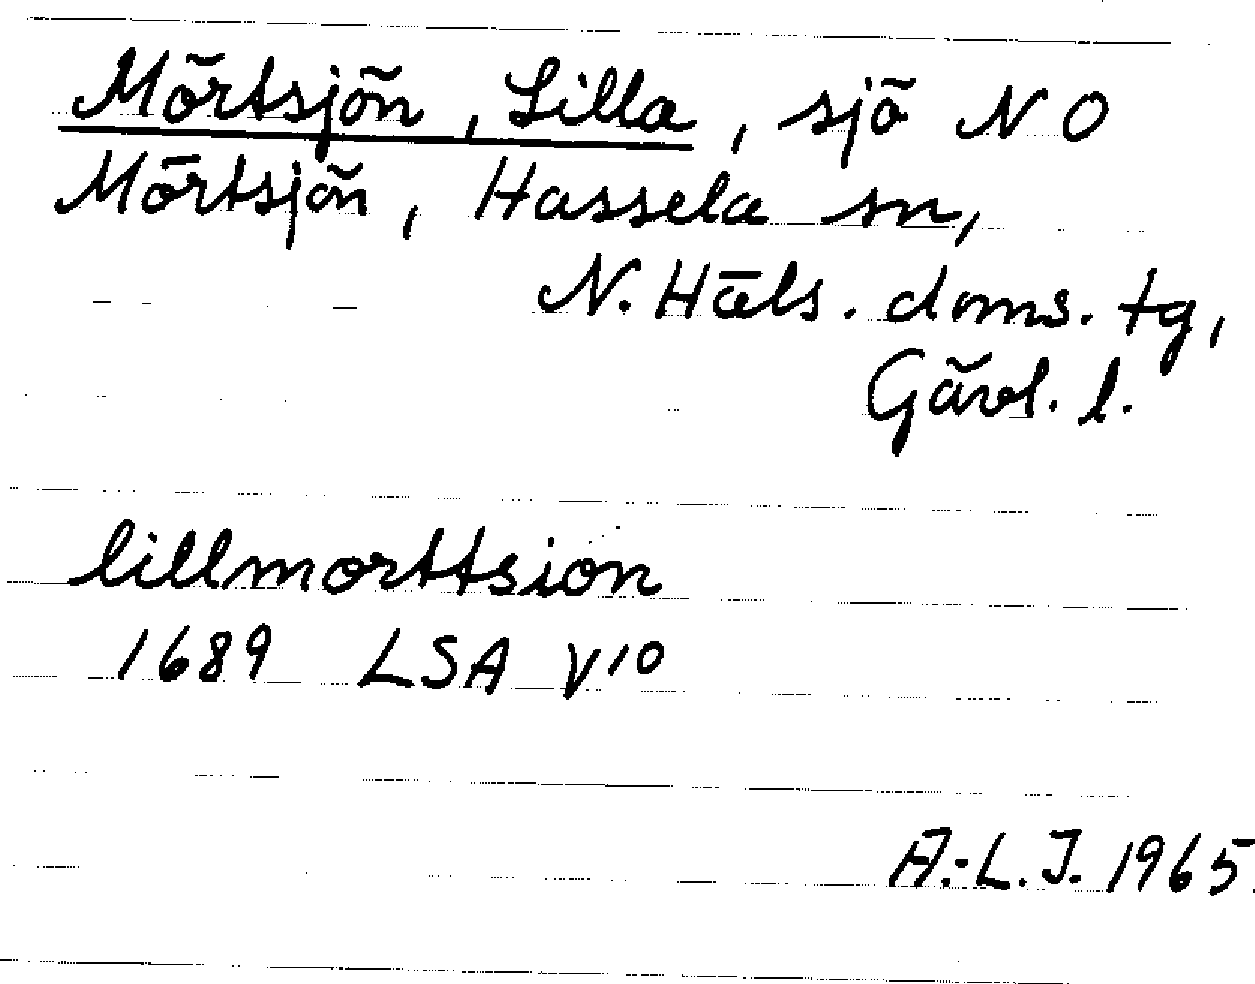 Mörtsjön, Lilla, sjö NO
Mörtsjön, Hassela sn,
N. Häls. doms. tg,
Gävl. l.
lillmorttsion
1689 LSA V10
A.-L.J. 1965.